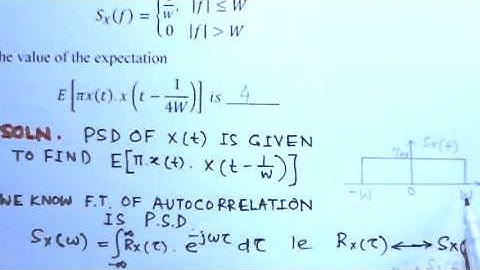 Sx(f) = { 1/W, |f| ≤ W
0 |f| > W
he value of the expectation
E[πx(t).x(t − 1/4W)] is 4
SOLN. PSD OF X(t) IS GIVEN
TO FIND E[π.x(t). x(t − 1/W)]
Sx(f)
-W 0 W
WE KNOW F.T. OF AUTOCORRELATION
IS P.S.D.
Sx(ω) = ∫ Rx(τ). e^-jωτ dτ ie Rx(τ) ↔ Sx(